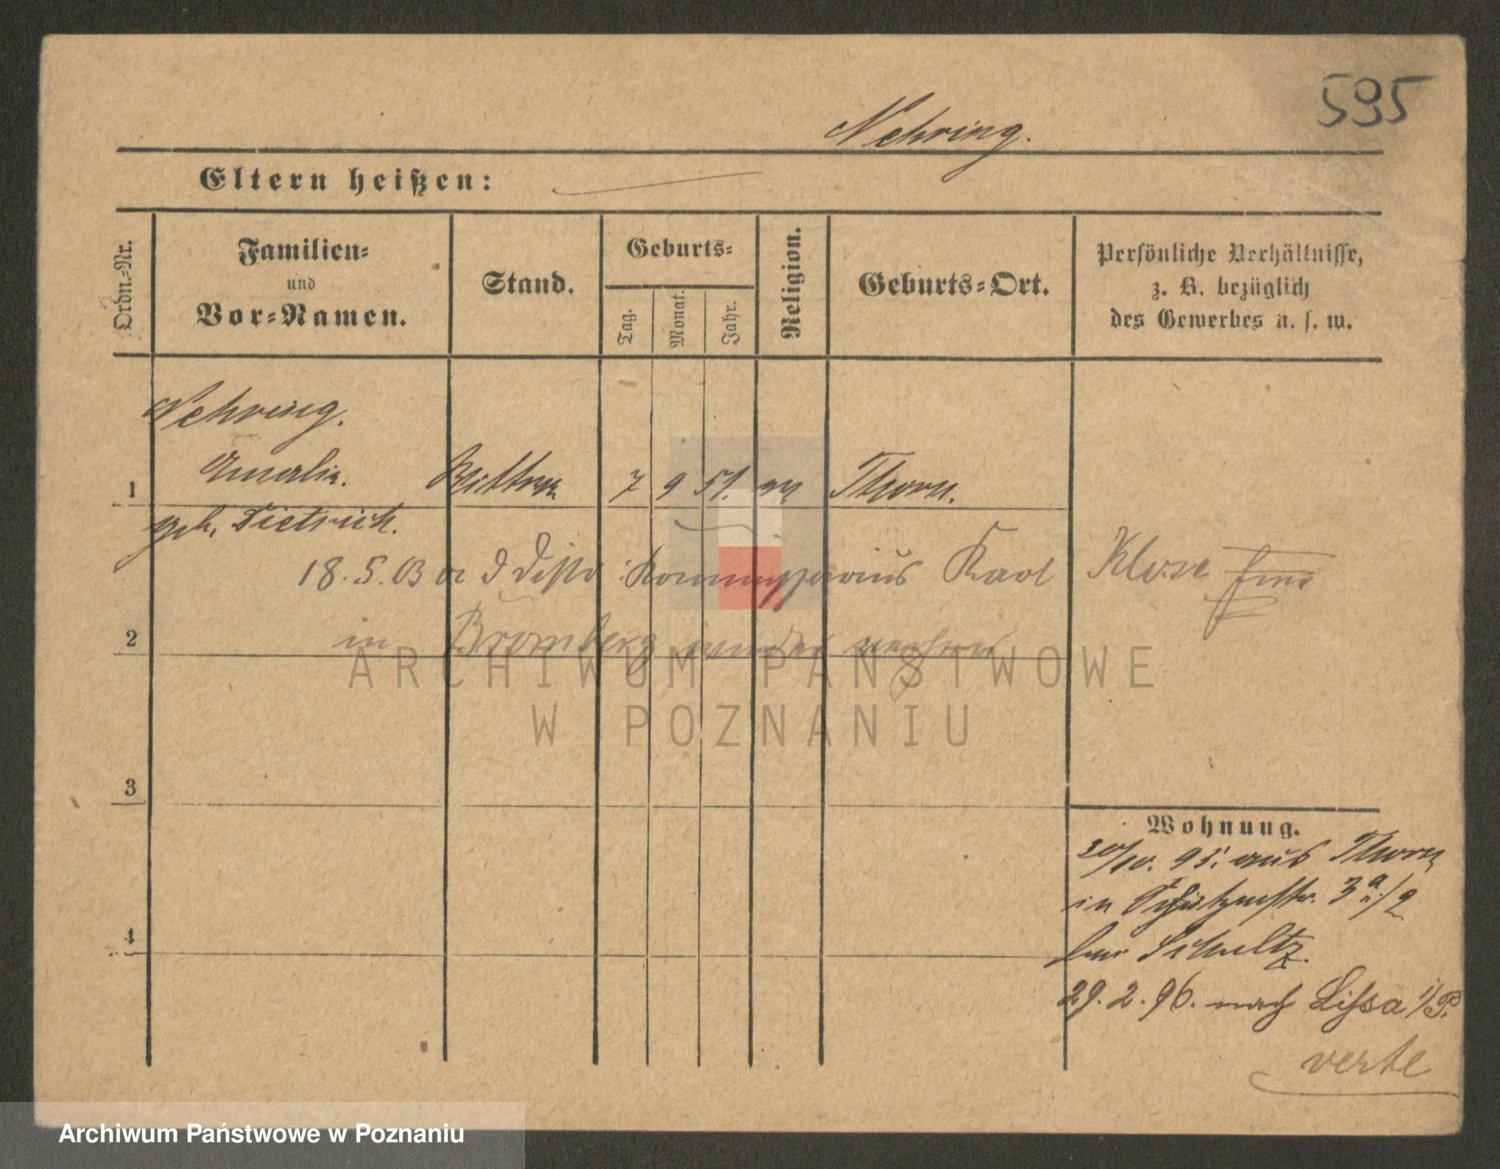 595
Nehring.
Eltern heißen:
Ordn.-Nr.
Familien-
und
Vor-Namen.
Stand.
Geburts-
Tag.
Monat.
Jahr.
Religion.
Geburts-Ort.
Persönliche Verhältnisse,
z. B. bezüglich
des Gewerbes u. s. w.
Nehring.
1 Amalie. 7 9 51. Thorn.
geb. Dietrich.
18.5.03 d Kommissarius Karl Klose
2 in Bromberg
ARCHIWUM PAŃSTWOWE
W POZNANIU
3
Wohnung.
20/10. 95. aus Thorn
in Schützenstr. 3
4
bei Schultz.
29.2.96. nach Lissa i/P.
verte
Archiwum Państwowe w Poznaniu